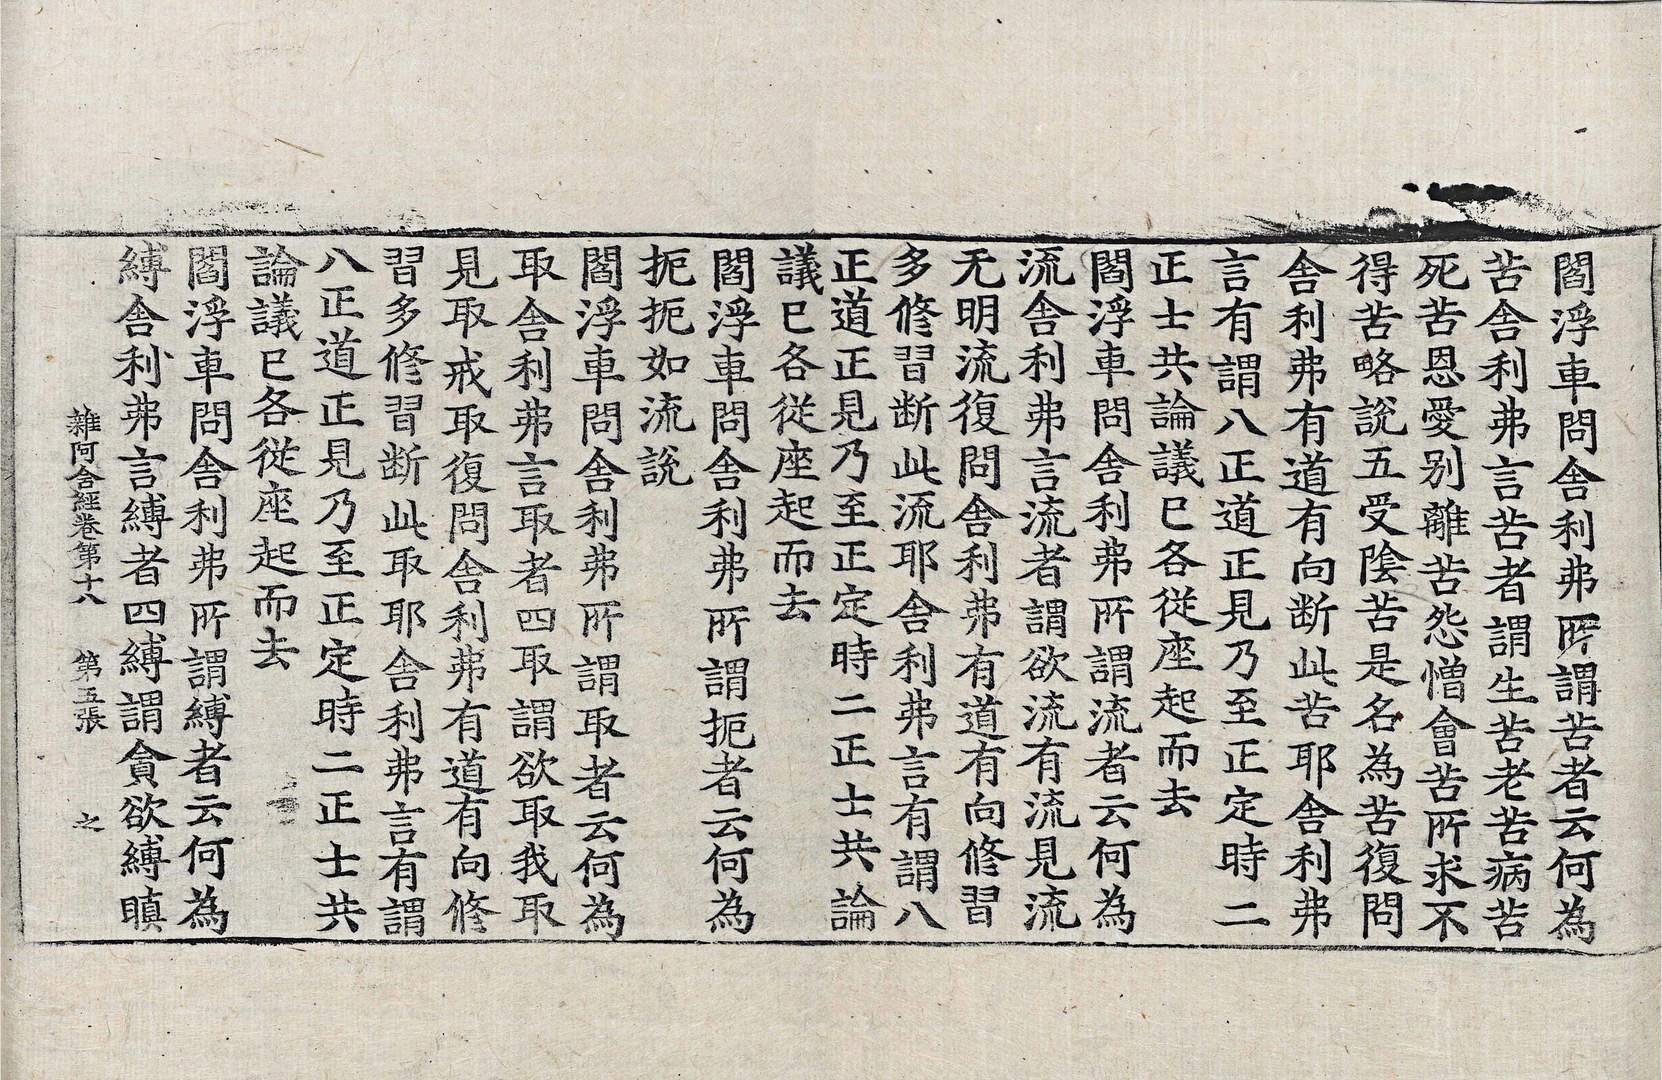 閻浮車問舍利弗所謂苦者云何為
苦舍利弗言苦者謂生苦老苦病苦
死苦恩愛别離苦怨憎會苦所求不
得苦略說五受陰苦是名為苦復問
舍利弗有道有向断此苦耶舍利弗
言有謂八正道正見乃至正定時二
正士共論議已各從座起而去
閻浮車問舍利弗所謂流者云何為
流舍利弗言流者謂欲流有流見流
无明流復問舍利弗有道有向修習
多修習断此流耶舍利弗言有謂八
正道正見乃至正定時二正士共論
議已各從座起而去
閻浮車問舍利弗所謂扼者云何為
扼扼如流說
閻浮車問舍利弗所謂取者云何為
取舍利弗言取者四取謂欲取我取
見取戒取復問舍利弗有道有向修
習多修習断此取耶舍利弗言有謂
八正道正見乃至正定時二正士共
論議已各從座起而去
閻浮車問舍利弗所謂縛者云何為
縛舍利弗言縛者四縛謂貪欲縛瞋
雜阿含經卷第十八 第五張 之